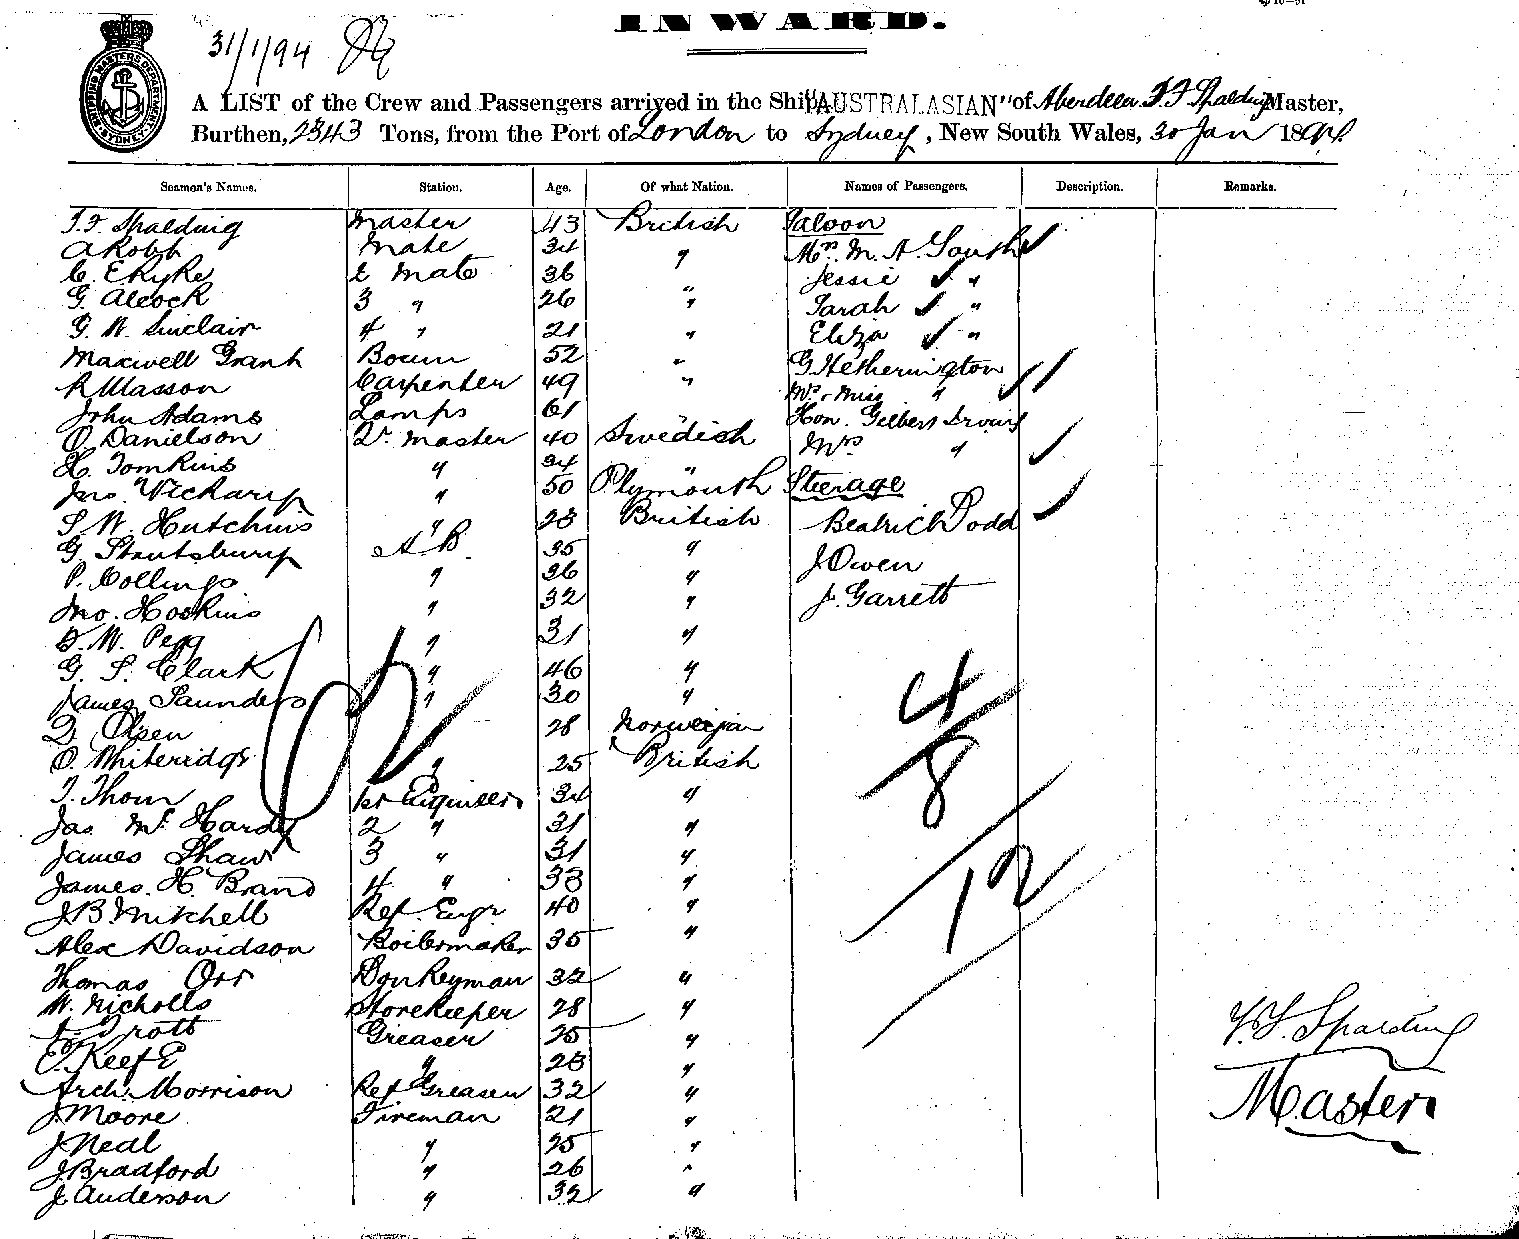 INWARD.
31/1/94
A LIST of the Crew and Passengers arrived in the Ship "AUSTRALASIAN" of Aberdeen T. F Spalding Master,
Burthen, 2343 Tons, from the Port of London to Sydney, New South Wales, 30 Jan 1894
Seamen's Names. Station. Age. Of what Nation. Names of Passengers. Description. Remarks.
T. F. Spalding Master 43 British Saloon
A Robb Mate 34 " Mrs. M. A. South ✓
C. E Kyke 2 Mate 36 Jessie ✓ "
G Alcock 3 " 26 " Sarah ✓ "
G. W. Sinclair 4 " 21 " Eliza ✓ "
Maxwell Grant Bosun 52 " G Hetherington
R Masson Carpenter 49 " Mrs & Miss " ✓ ✓
John Adams Lamps 61 " Hon. Gilbert
O. Danielson Qr. Master 40 Swedish Mrs " ✓
H. Tomkins " 34 "
Jno. Vickary " 50 Plymouth Steerage
S. W. Hutchins " 23 British Beatrice Dodd ✓
G. Stoutsbury A B. 35 " J Owen
P. Collings " 36 " J. Garrett
Jno. Hoskins " 32 "
D. W. Pegg " 31 "
G. S. Clark " 46 "
James Saunders " 30 " 4
Olsen 28 Norwegian
O. Whiteridge " 25 British 8
T. Thom 1st Engineer 34 "
Jas Mc Hardy 2 " 31 "
James Shaw 3 " 31 " 12
James. H. Brand 4 " 33 "
J B Mitchell Ref. Engr 40 "
Alex Davidson Boilermaker 35 "
Thomas Orr Donkeyman 32 "
W. Nicholls Storekeeper 28 "
A. Trott Greaser 25 " T. F. Spalding
E. Keefe " 23 "
Arch. Morrison Ref Greaser 32 " Master
J. Moore Fireman 21 "
J. Neal " 25 "
J. Bradford " 26 "
J. Anderson " 32 "